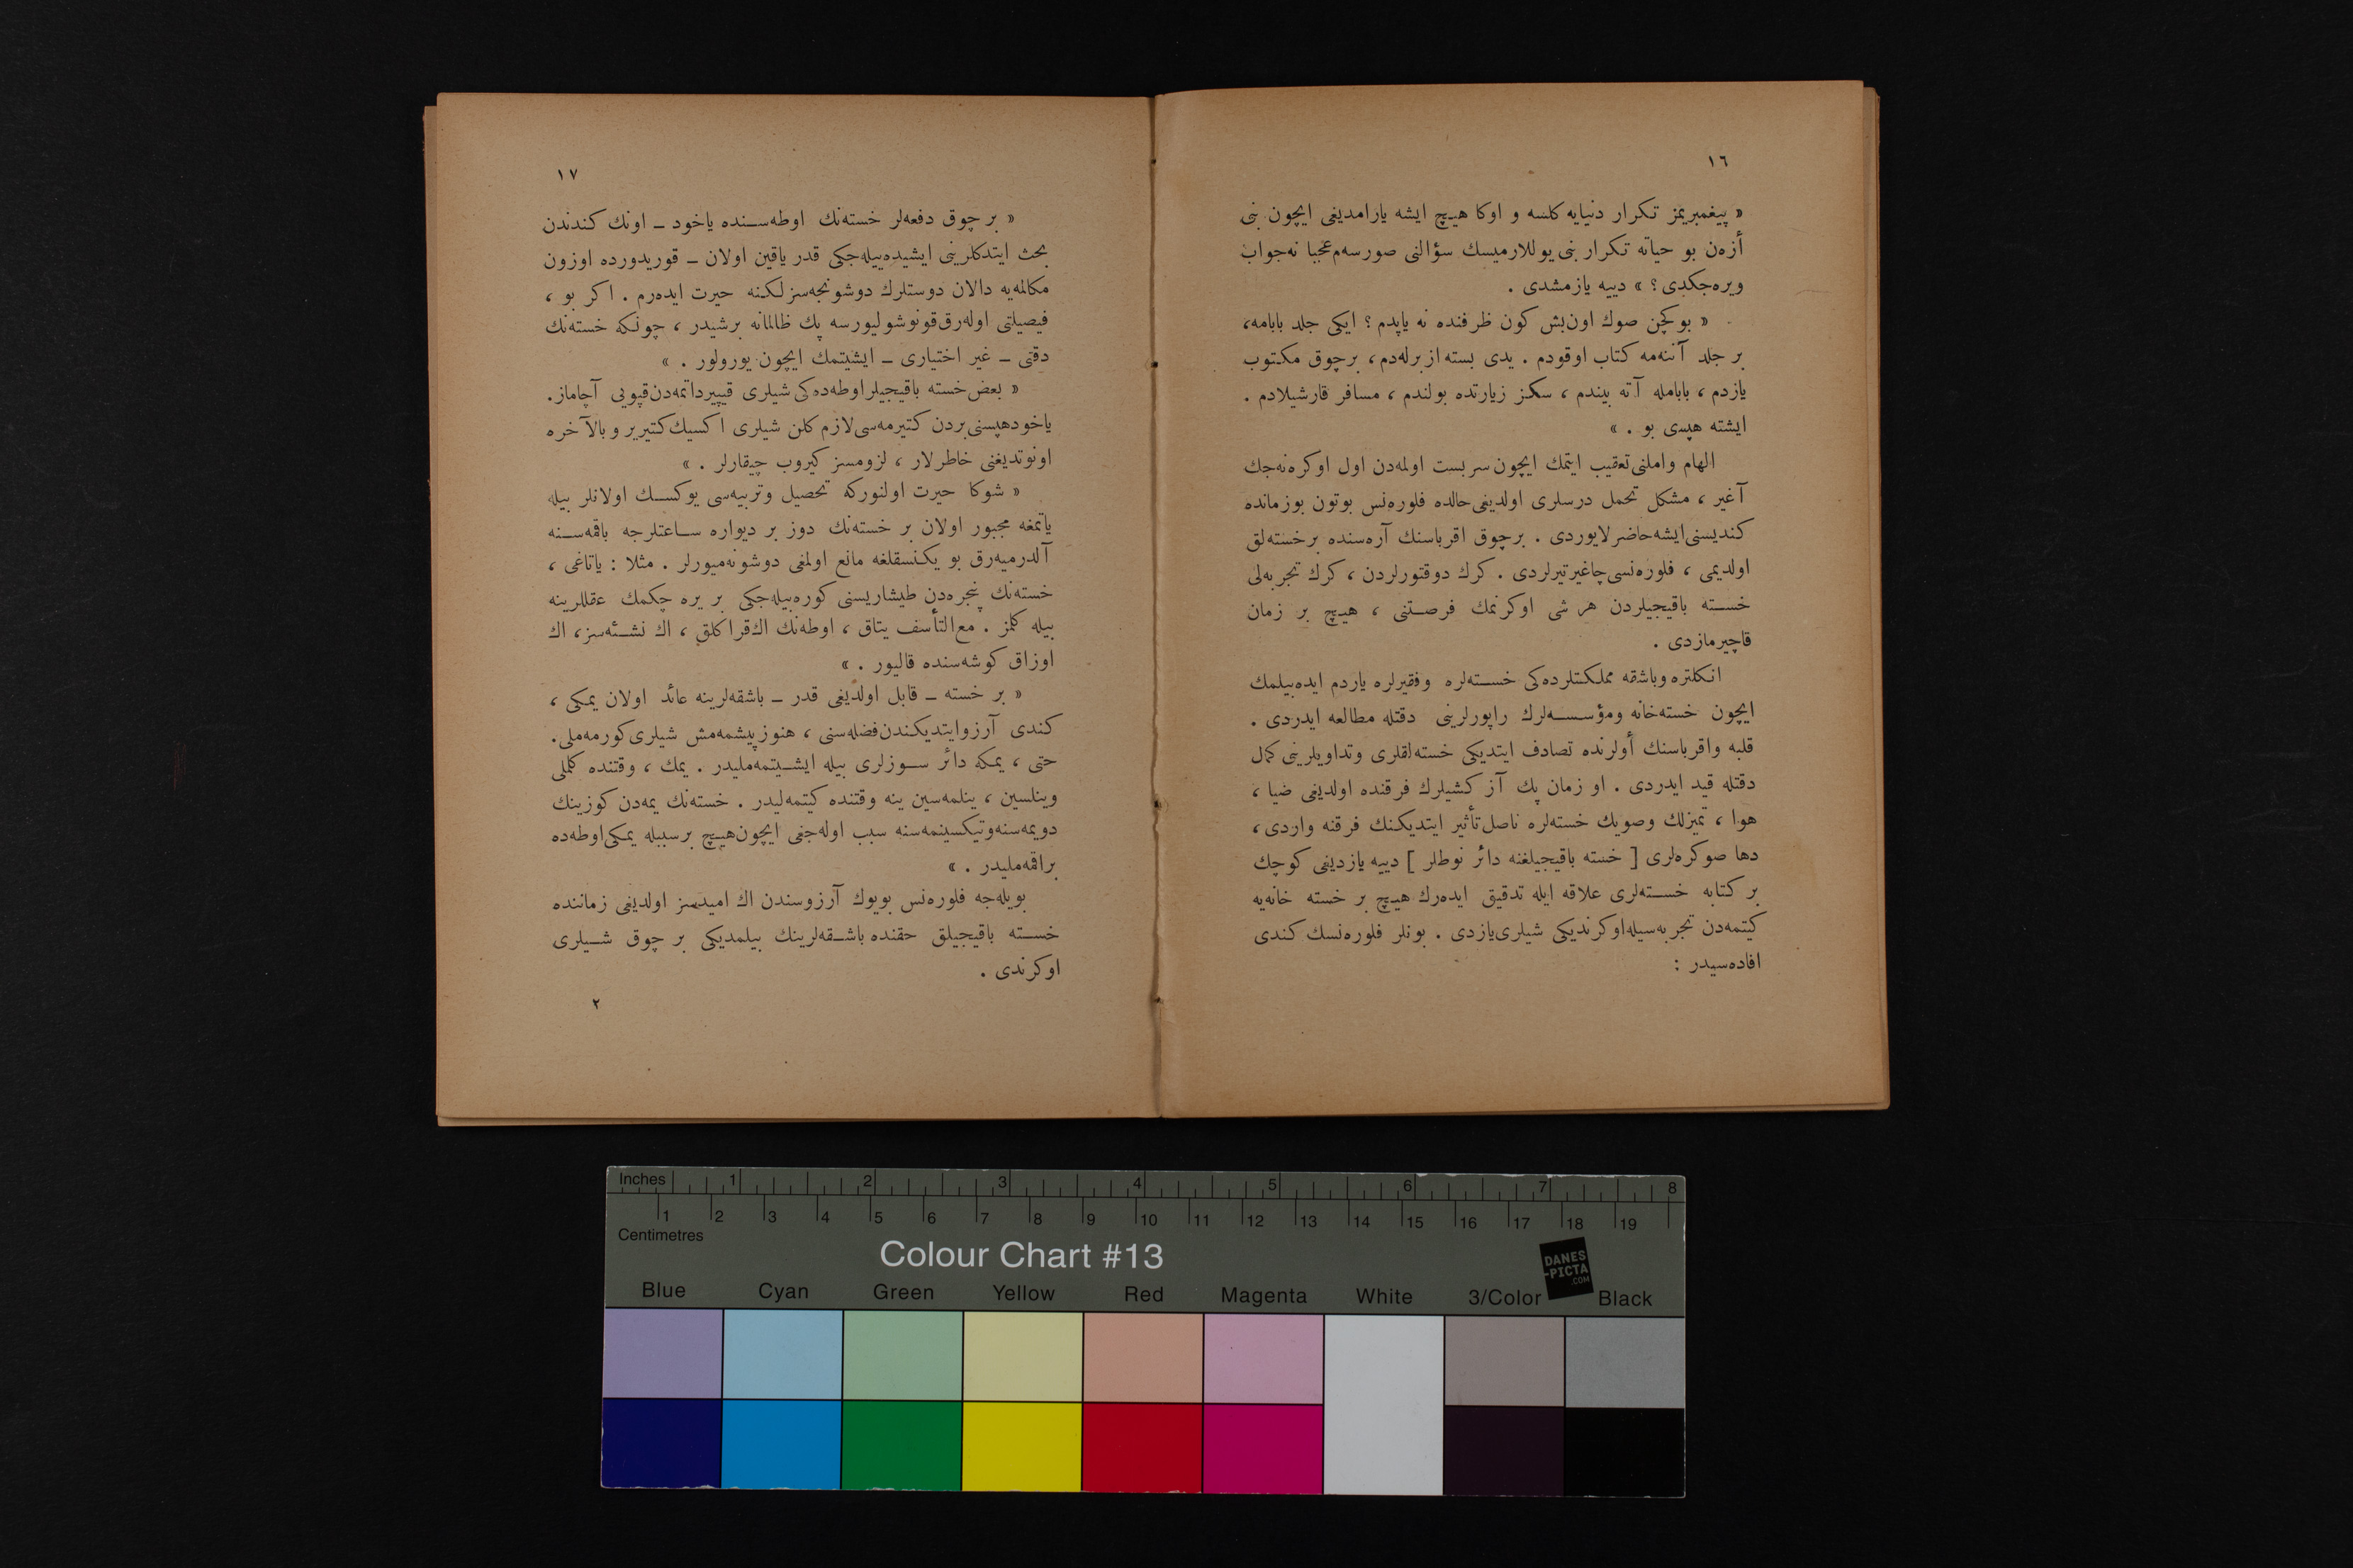 ١٦
« پيغمبريمز تكرار دنيايه كلسه و اوكا هيچ ايشه يارامديغى ايچون بنى
أزەن بو حياته تكرار بنى يوللارميسك سؤالنى صورسەم عجبا نەجواب
ويرەجكدى ؟ » دييه يازمشدى .
« بوكچن صوك اون‌بش كون ظرفنده نه ياپدم ؟ ايكى جلد بابامه،
بر جلد آننەمه كتاب اوقودم . يدى بسته ازبرلەدم ، برچوق مكتوب
يازدم ، باباملە آته بيندم ، سكز زيارتده بولندم ، مسافر قارشيلادم .
ايشته هپسى بو . »
الهام واملنى تعقيب ايتمك ايچون سربست اولمەدن اول اوكرەنەجك
آغير ، مشكل تحمل درسلرى اولديغى حالده فلورەنس بوتون بوزمانده
كنديسنى ايشه حاضرلايوردى . برچوق اقرباسنك آرەسنده برخستەلق
اولديمى ، فلورەنسى چاغيرتيرلردى . كرك دوقتورلردن ، كرك تجربەلى
خسته باقيجيلردن هر شى اوكرنمك فرصتنى ، هيچ بر زمان
قاچيرمازدى .
انكلتره وباشقه مملكتلردەكى خستەلره وفقيرلره ياردم ايدەبيلمك
ايچون خستەخانه ومؤسسەلرك راپورلرينى دقتله مطالعه ايدردى .
قلبه واقرباسنك أولرنده تصادف ايتديكى خستەلقلرى وتداويلرينى كمال
دقتله قيد ايدردى . او زمان پك آز كشيلرك فرقنده اولديغى ضيا ،
هوا ، تميزلك وصويك خستەلره ناصل تأثير ايتديكنك فرقنه واردى ،
دها صوكرەلرى [ خسته باقيجيلغنه دائر نوطلر ] دييه يازديغى كوچك
بر كتابه خستەلرى علاقه ايله تدقيق ايدەرك هيچ بر خسته خانەيه
كيتمەدن تجربەسيله اوكرنديكى شيلرى يازدى . بونلر فلورەنسك كندى
افادەسيدر :
١٧
« بر چوق دفعەلر خستەنك اوطەسنده ياخود ـ اونك كندندن
بحث ايتدكلرينى ايشيدەبيلەجكى قدر ياقين اولان ـ قوريدورده اوزون
مكالمەيه دالان دوستلرك دوشونجەسزلكنه حيرت ايدەرم . اكر بو ،
فيصيلتى اولەرق قونوشوليورسه پك ظالمانه برشيدر ، چونكه خستەنك
دقتى ـ غير اختيارى ـ ايشيتمك ايچون يورولور . »
« بعض خسته باقيجيلر اوطەدەكى شيلرى قيپيرداتمەدن قپويى آچاماز.
ياخود هپسنى بردن كتيرمەسى لازم كلن شيلرى اكسيك كتيرير و بالآخره
اونوتديغنى خاطرلار ، لزومسز كيروب چيقارلر . »
« شوكا حيرت اولنوركه تحصيل وتربيەسى يوكسك اولانلر بيله
ياتمغه مجبور اولان بر خستەنك دوز بر ديواره ساعتلرجه باقمەسنه
آلدرميەرق بو يكنسقلغه مانع اولمغى دوشونەميورلر . مثلا : ياتاغى ،
خستەنك پنجرەدن طيشاريسنى كورەبيلەجكى بر يره چكمك عقللرينه
بيله كلمز . مع التأسف يتاق ، اوطەنك اك قراكلق ، اك نشئەسز، اك
اوزاق كوشەسنده قاليور . »
« بر خسته ـ قابل اولديغى قدر ـ باشقەلرينه عائد اولان يمكى ،
كندى آرزوايتديكندن فضلەسنى ، هنوز پيشمەمش شيلرى كورمەملى.
حتى ، يمكه دائر سوزلرى بيله ايشيتمەمليدر . يمك ، وقتنده كلملى
وينلسين ، ينلمەسين ينه وقتنده كيتمەليدر . خستەنك يمەدن كوزينك
دويمەسنه وتيكسينمەسنه سبب اولەجغى ايچون هيچ برسببله يمكى اوطەده
براقمەمليدر . »
بويلەجه فلورەنس بويوك آرزوسندن اك اميدسز اولديغى زماننده
خسته باقيجيلق حقنده باشقەلرينك بيلمديكى بر چوق شيلرى
اوكرندى .
٢
Inches 1 2 3 4 5 6 7 8
1 2 3 4 5 6 7 8 9 10 11 12 13 14 15 16 17 18 19
Centimetres
Colour Chart #13
DANES
-PICTA
.COM
Blue Cyan Green Yellow Red Magenta White 3/Color Black